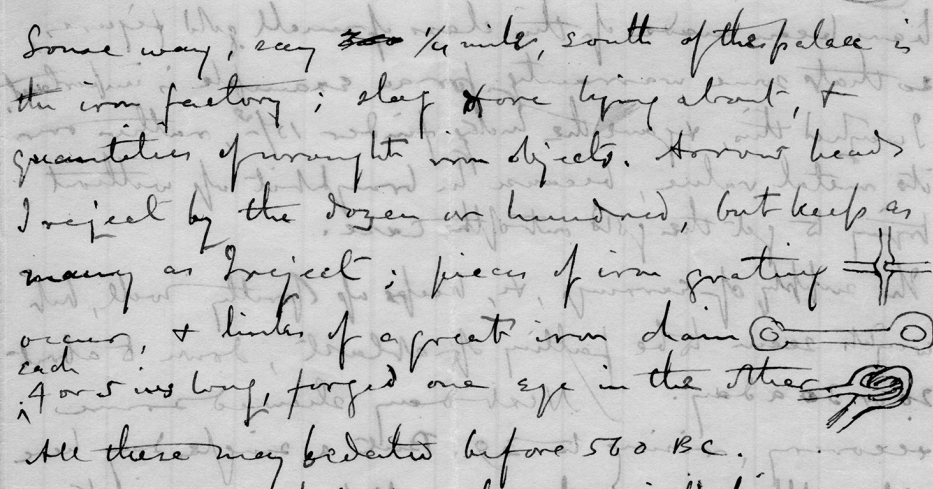 Some way, say 1/4 mile, south of the palace is
the iron factory; slag & ore lying about, &
quantities of wrought iron objects. Arrow heads
I reject by the dozen or hundred, but keep as
many as I reject; pieces of iron grating
occur, & links of a great iron chain
each
4 or 5 ins long, forged one eye in the other
All these may be dated before 560 BC.